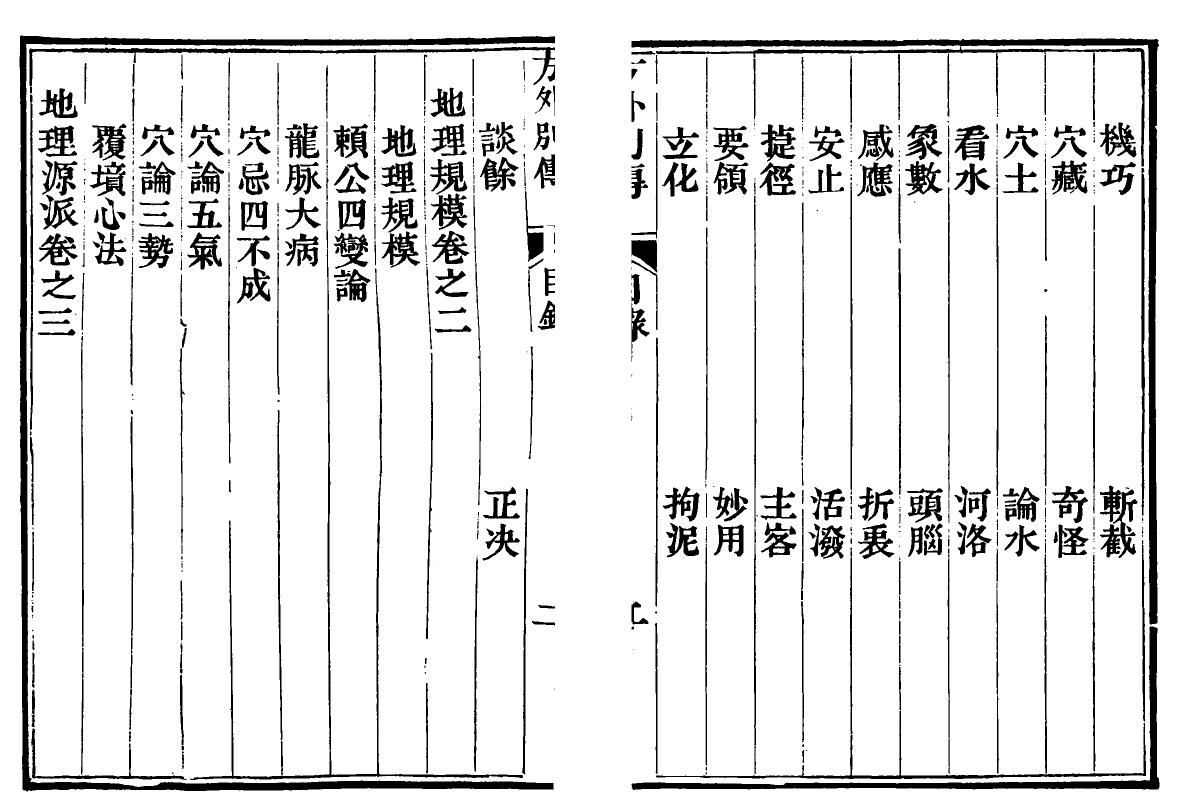 機巧　斬截
穴藏　奇怪
穴土　論水
看水　河洛
象數　頭腦
感應　折衷
安止　活潑
捷徑　主客
要領　妙用
立化　拘泥
方外別傳　目錄　二
談餘　正決
地理規模卷之二
地理規模
賴公四變論
龍脉大病
穴忌四不成
穴論五氣
穴論三勢
覆墳心法
地理源派卷之三